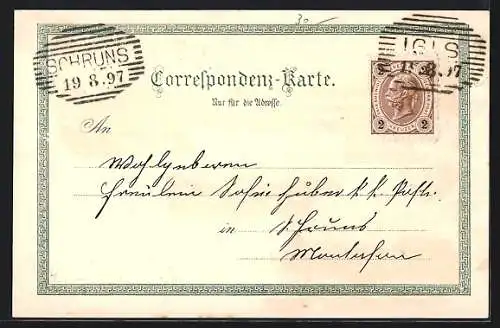 30
SCHRUNS
19 8.97
IGLS
8.97
2 2
Correspondenz-Karte.
Nur für die Adresse.
An
Wohlgeboren
Fräulein Sofie Huber k. k. Post-
in Schruns
Montafon